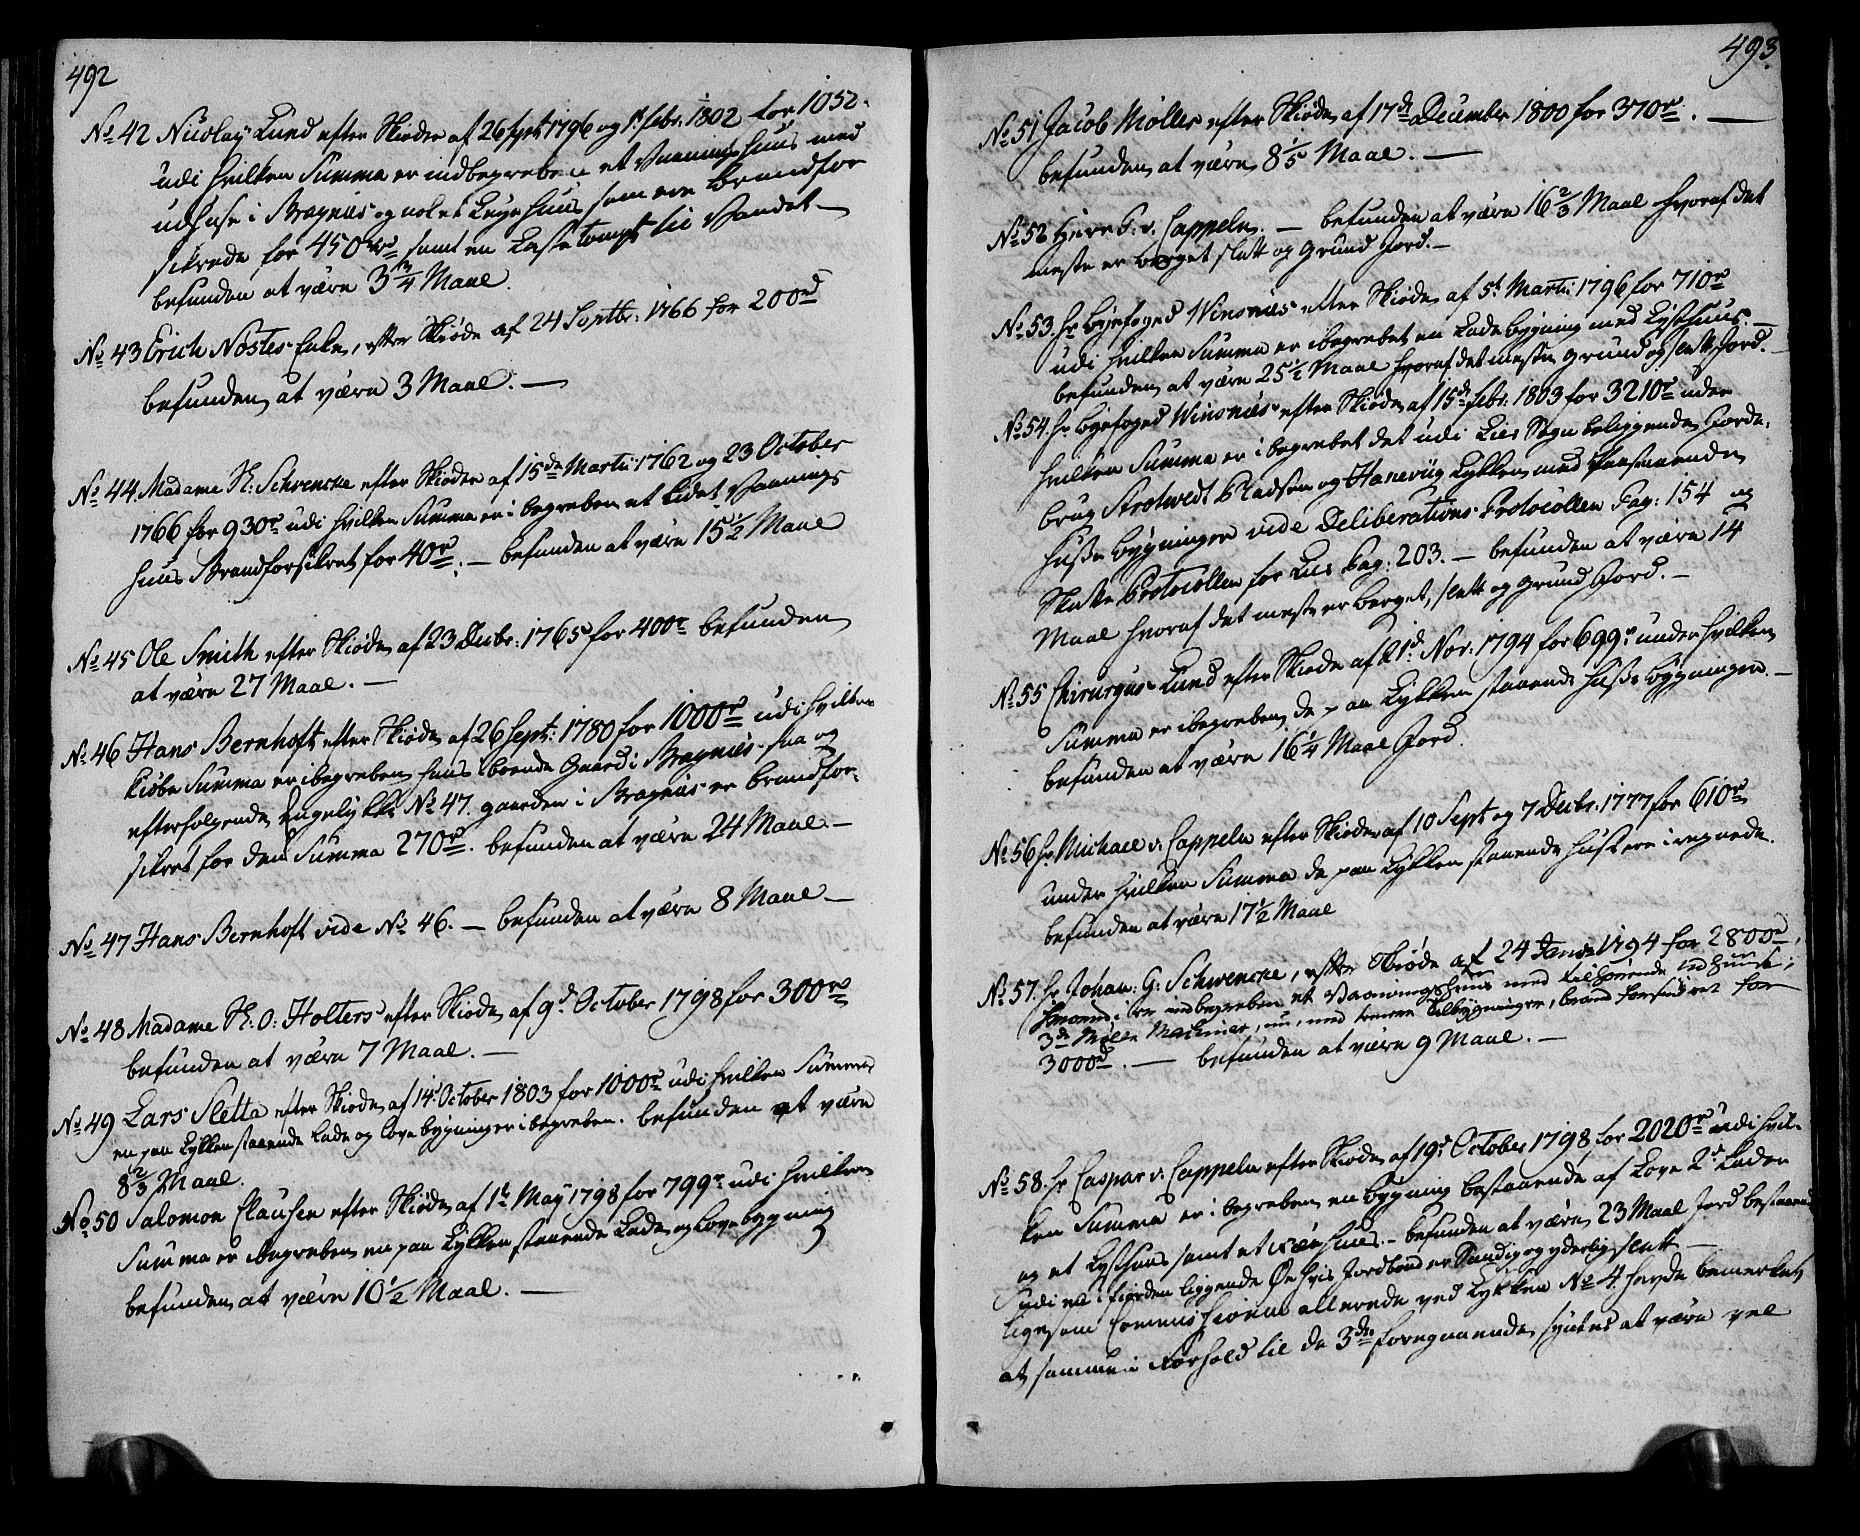 492
No 42 Nicolay Lund efter Skiøder af 26 Sept 1796 og 1st febr. 1802 for 1052
udi hvilken Summa er indbegreben et Vaaningshuus med
udhuse i Bragnæs og nok et Leyehuus som ere brandfor
sikrede for 450 rd samt en Lastetompt til Vandet —
befunden at være 3 3/4 Maal.
No 43 Erich Nøstes Enke, efter Skiøde af 24 Septbr. 1766 for 200 rd
befunden at være 3 Maal. —
No 44 Madame Sl: Schwencke efter Skiøder af 15de Martii 1762 og 23 October
1766 for 930 r udi hvilken Summa er i begreben et Lidet Vaanings
huus Brandforsikret for 40 r. — befunden at være 15 1/2 Maal
No 45 Ole Smith efter Skiøde af 23 Decbr. 1765 for 400 r befunden
at være 27 Maal. —
No 46 Hans Bernhoft efter Skiøde af 26 Sept. 1780 for 1000 r udi hvilken
kiøbe Summa er ibegreben hans iboende Gaard i Bragnæs saa og
efterfølgende Engelykke No 47. gaarden i Bragnæs er brandfor-
sikret for den Summa 270 r. befunden at være 24 Maal. —
No 47 Hans Bernhoft vide No 46. — befunden at være 8 Maal —
No 48 Madame Sl. O: Holters efter Skiøde af 9d October 1798 for 300 rd
befunden at være 7 Maal. —
No 49 Lars Sletta efter Skiøde af 14d October 1803 for 1000 r udi hvilken Summa
en paa Lykken staaende Lade og Lovebygning er ibegreben. befunden at være
8 2/3 Maal.
No 50 Salomon Clausen efter Skiøde af 1t May 1798 for 799 r udi hvilken
Summa er ibegreben en paa Lykken staaende Lade og Lovebygning
befunden at være 10 1/2 Maal. —
493.
No 51 Jacob Møller efter Skiøde af 17de December 1800 for 370 r. —
befunden at være 8 1/5 Maal. —
No 52 Herr P. v. Cappeln. — befunden at være 16 2/3 Maal hvoraf det
meste er berget slett og Grund Jord. —
No 53. hr Byefoged Winsnæs efter Skiøde af 5t Martii 1796 for 710 r
udi hvilken Summa er ibegrebet en Ladebygning med Lysthuus. —
befunden at være 25 1/2 Maal hvoraf det meste grund og slett Jord. —
No 54. hr Byefoged Winsnæs efter Skiøde af 15de febr. 1803 for 3210 r uder
hvilken Summa er i begrebet det udi Lier Sogn beliggende Jorde-
brug Strotvedt Pladsen og Hanevüg Lykken med paastaaende
Husse bygninger vide Deliberations Protocollen Pag: 154 og
Skatte Protocollen for Lier Pag: 203. — befunden at være 14
Maal hvoraf det meste er berget, slett og grund Jord. —
No 55 Chirurgus Lund efter Skiøde af 21d Nov. 1794 for 699 r under hvilken
Summa er ibegreben de paa Lykken staaende Husse bygninger. —
befunden at være 16 1/4 Maal Jord.
No 56 hr Michael v. Cappeln efter Skiøder af 10 Sept og 7 Decbr. 1777 for 610 r
under hvilken Summa de paa Lykken staaende Huse ere iregnede.
befunden at være 17 1/2 Maal
No 57. hr Johan: G: Schwencke, efter Skiøde af 24 Janua 1794 for 2800 rd,
hvorudi er indbegreben et Vaaningshuus med tilhørende Udhuuse,
3de Mølle Maskiner, nu, med senere tilbygninger, brand forsikret for
3000 rd. — befunden at være 9 Maal. —
No 58. hr Caspar v. Cappeln efter Skiøde af 19d October 1798 for 2020 r udi hvil-
ken Summa er i begreben en bygning bestaaende af Love 2de Lader
og et Lysthuus samt et huus. — befunden at være 23 Maal Jord bestaaende
udi en i fjorden liggende Øe hvis Jordbond er Sandig og yderlig slett —
ligesom Commissionen allerede ved Lykken No 4 havde bemerket
at samme i Forhold til de 3de foregaaende syntes at være vel